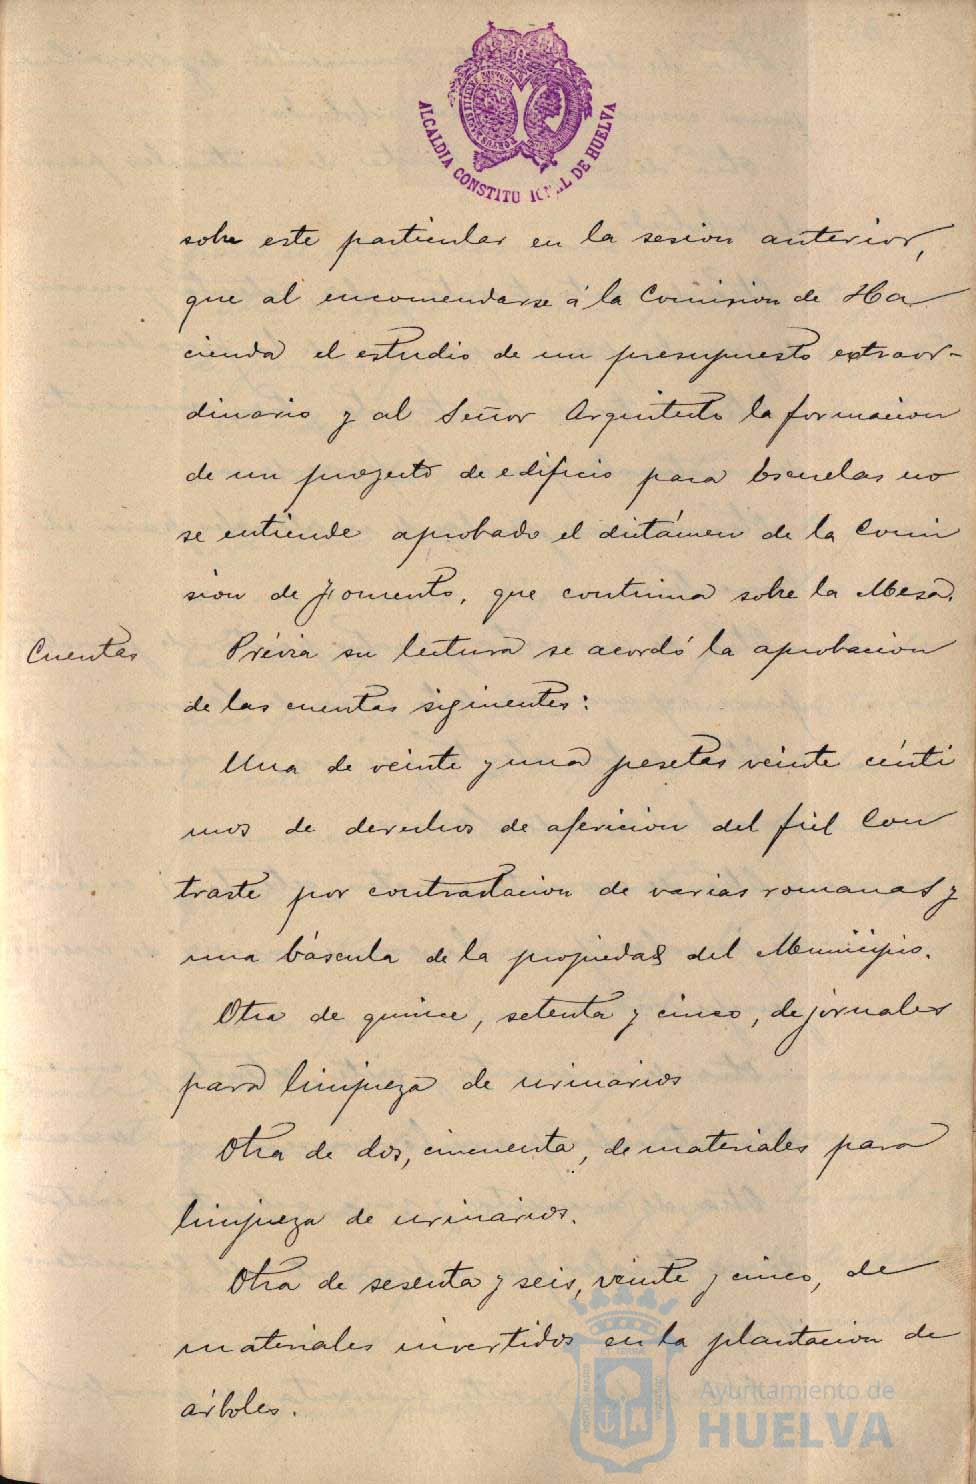 ALCALDIA CONSTITUCIONAL DE HUELVA
sobre este particular en la sesion anterior,
que al encomendarse á la Comision de Ha
cienda el estudio de un presupuesto extraor-
dinario y al Señor Arquitecto la formacion
de un proyecto de edificio para Escuelas no
se entiende aprobado el dictámen de la Comi
sion de Fomento, que continua sobre la Mesa.
Cuentas
Prévia su lectura se acordó la aprobacion
de las cuentas siguientes:
Una de veinte y una pesetas veinte cénti
mos de derechos de afericion del fiel Con
traste por contrastacion de varias romanas y
una báscula de la propiedad del Municipio.
Otra de quince, setenta y cinco, de jornales
para limpieza de urinarios
Otra de dos, cincuenta, de materiales para
limpieza de urinarios.
Otra de sesenta y seis, veinte y cinco, de
materiales invertidos en la plantacion de
árboles.
Ayuntamiento de
HUELVA